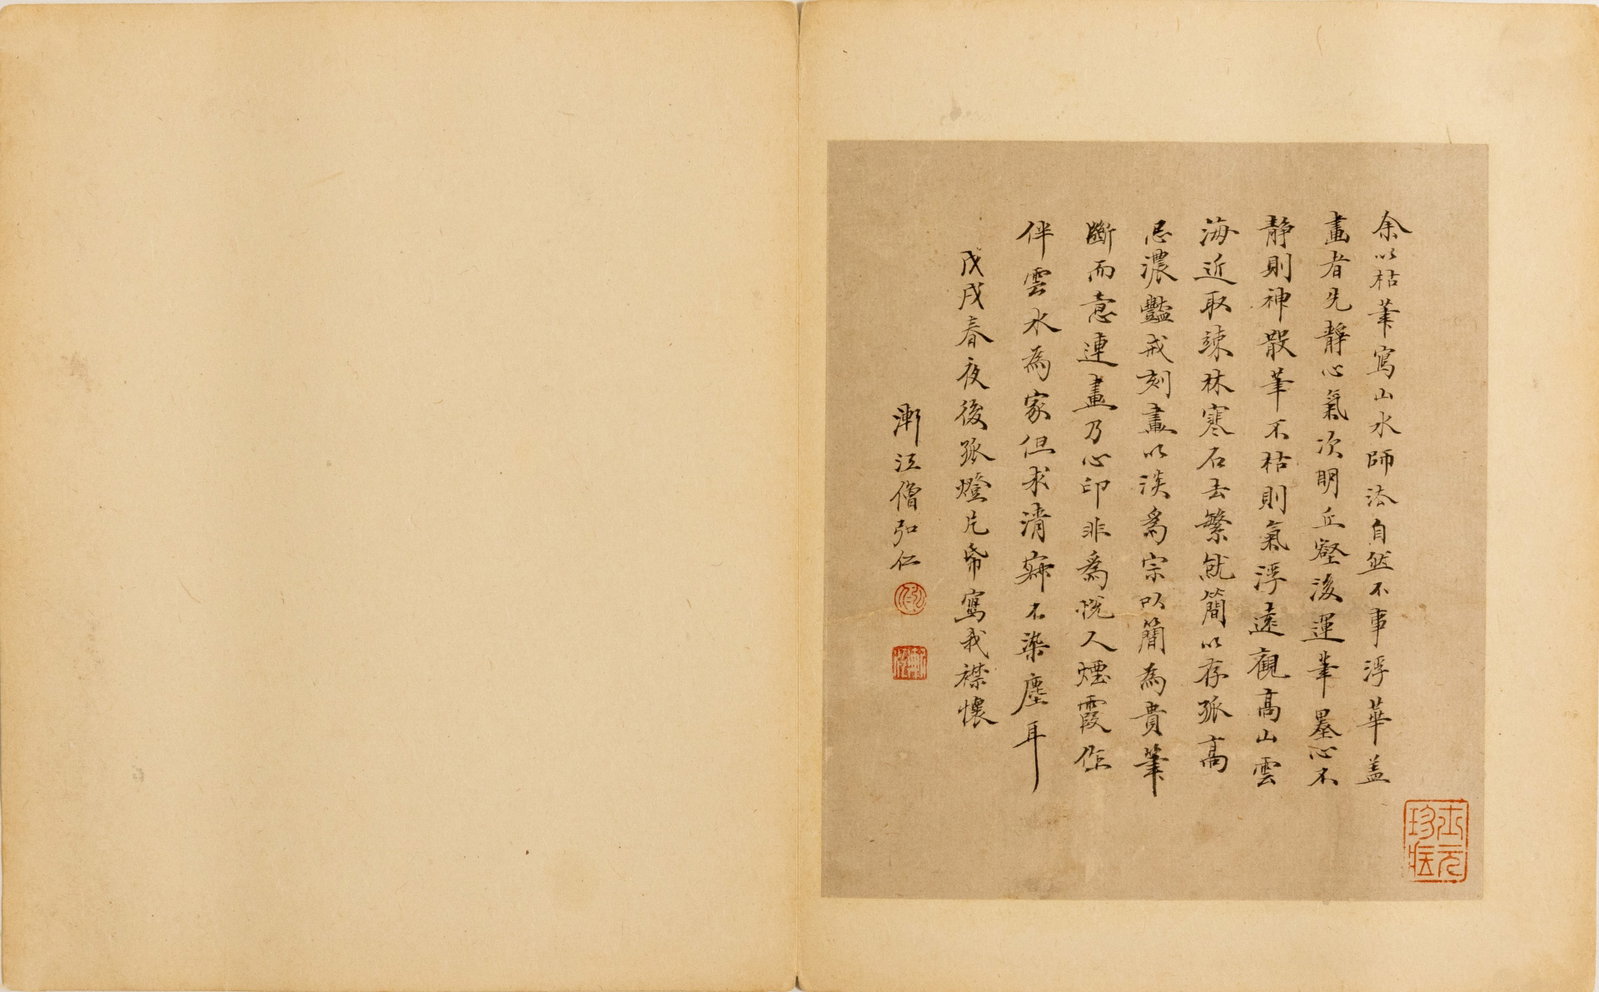 余以枯筆寫山水師法自然不事浮華蓋
畫者先靜心氣次明丘壑後運筆墨心不
靜則神散筆不枯則氣浮遠觀高山雲
海近取疎林寒石去繁就簡以存孤高
忌濃豔戒刻畫以淡為宗以簡為貴筆
斷而意連畫乃心印非為悅人煙霞作
伴雲水為家但求清寂不染塵耳
戊戌春夜後孤燈几帋寫我襟懷
漸江僧弘仁